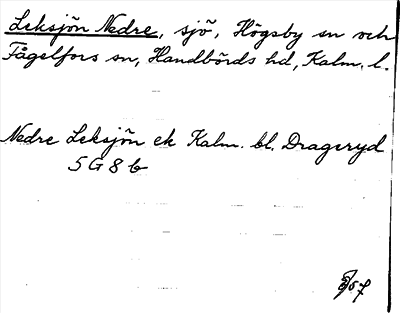 Leksjön Nedre, sjö, Högsby sn och
Fågelfors sn, Handbörds hd, Kalm. l.
Nedre Leksjön ek Kalm. bl. Drageryd
5 G 8 b